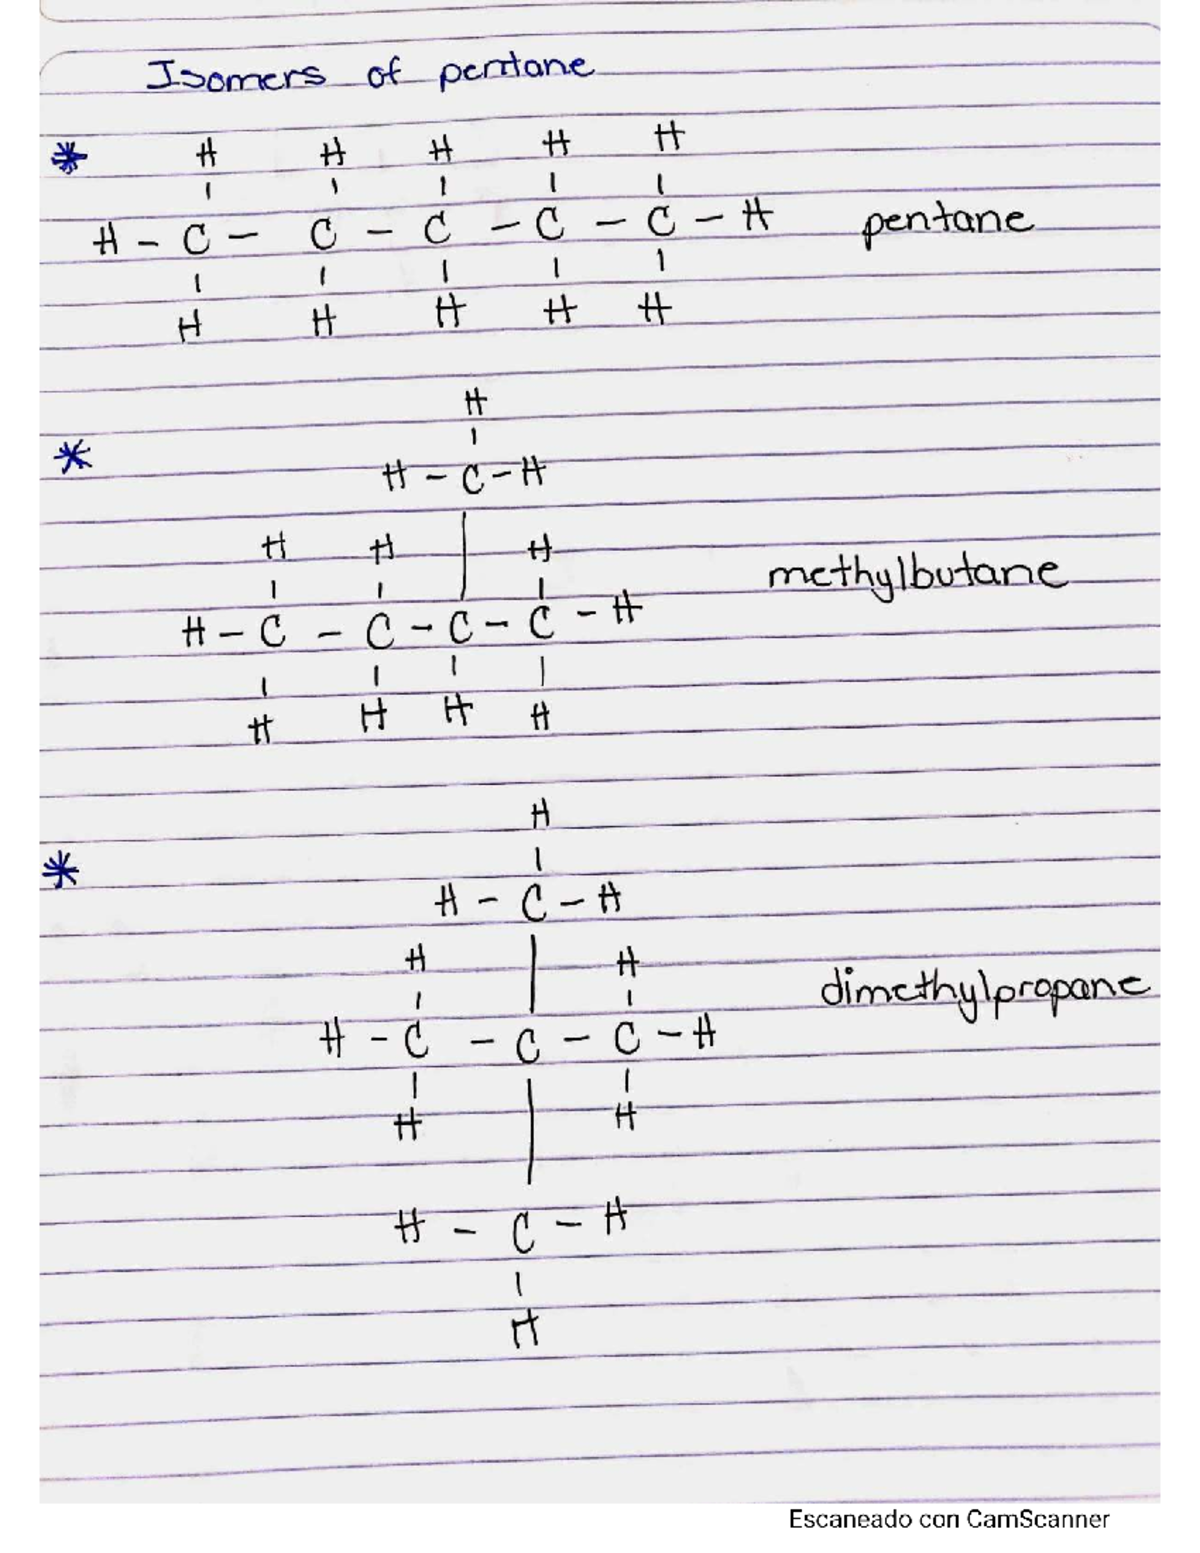 Isomers of pentane
* H H H H H
H - C - C - C - C - C - H pentane
H H H H H
H
* H - C - H
H H H
methylbutane
H - C - C - C - C - H
H H H H
H
* H - C - H
H H
dimethylpropane
H - C - C - C - H
H H
H - C - H
H
Escaneado con CamScanner